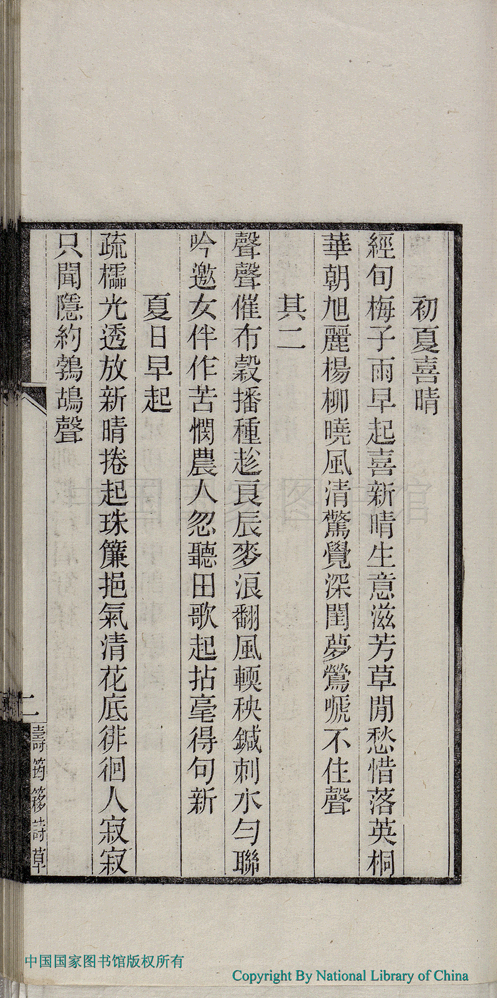 初夏喜晴
經旬梅子雨早起喜新晴生意滋芳草閒愁惜落英桐
華朝旭麗楊柳曉風清驚覺深閨夢鶯嗁不住聲
其二
聲聲催布穀播種趁良辰麥浪翻風輭秧鍼刺水勻聯
吟邀女伴作苦憫農人忽聽田歌起拈毫得句新
夏日早起
疏櫺光透放新晴捲起珠簾挹氣清花底徘徊人寂寂
只聞隱約鵓鴣聲
二
壽筠簃詩草
中国国家图书馆版权所有
Copyright By National Library of China